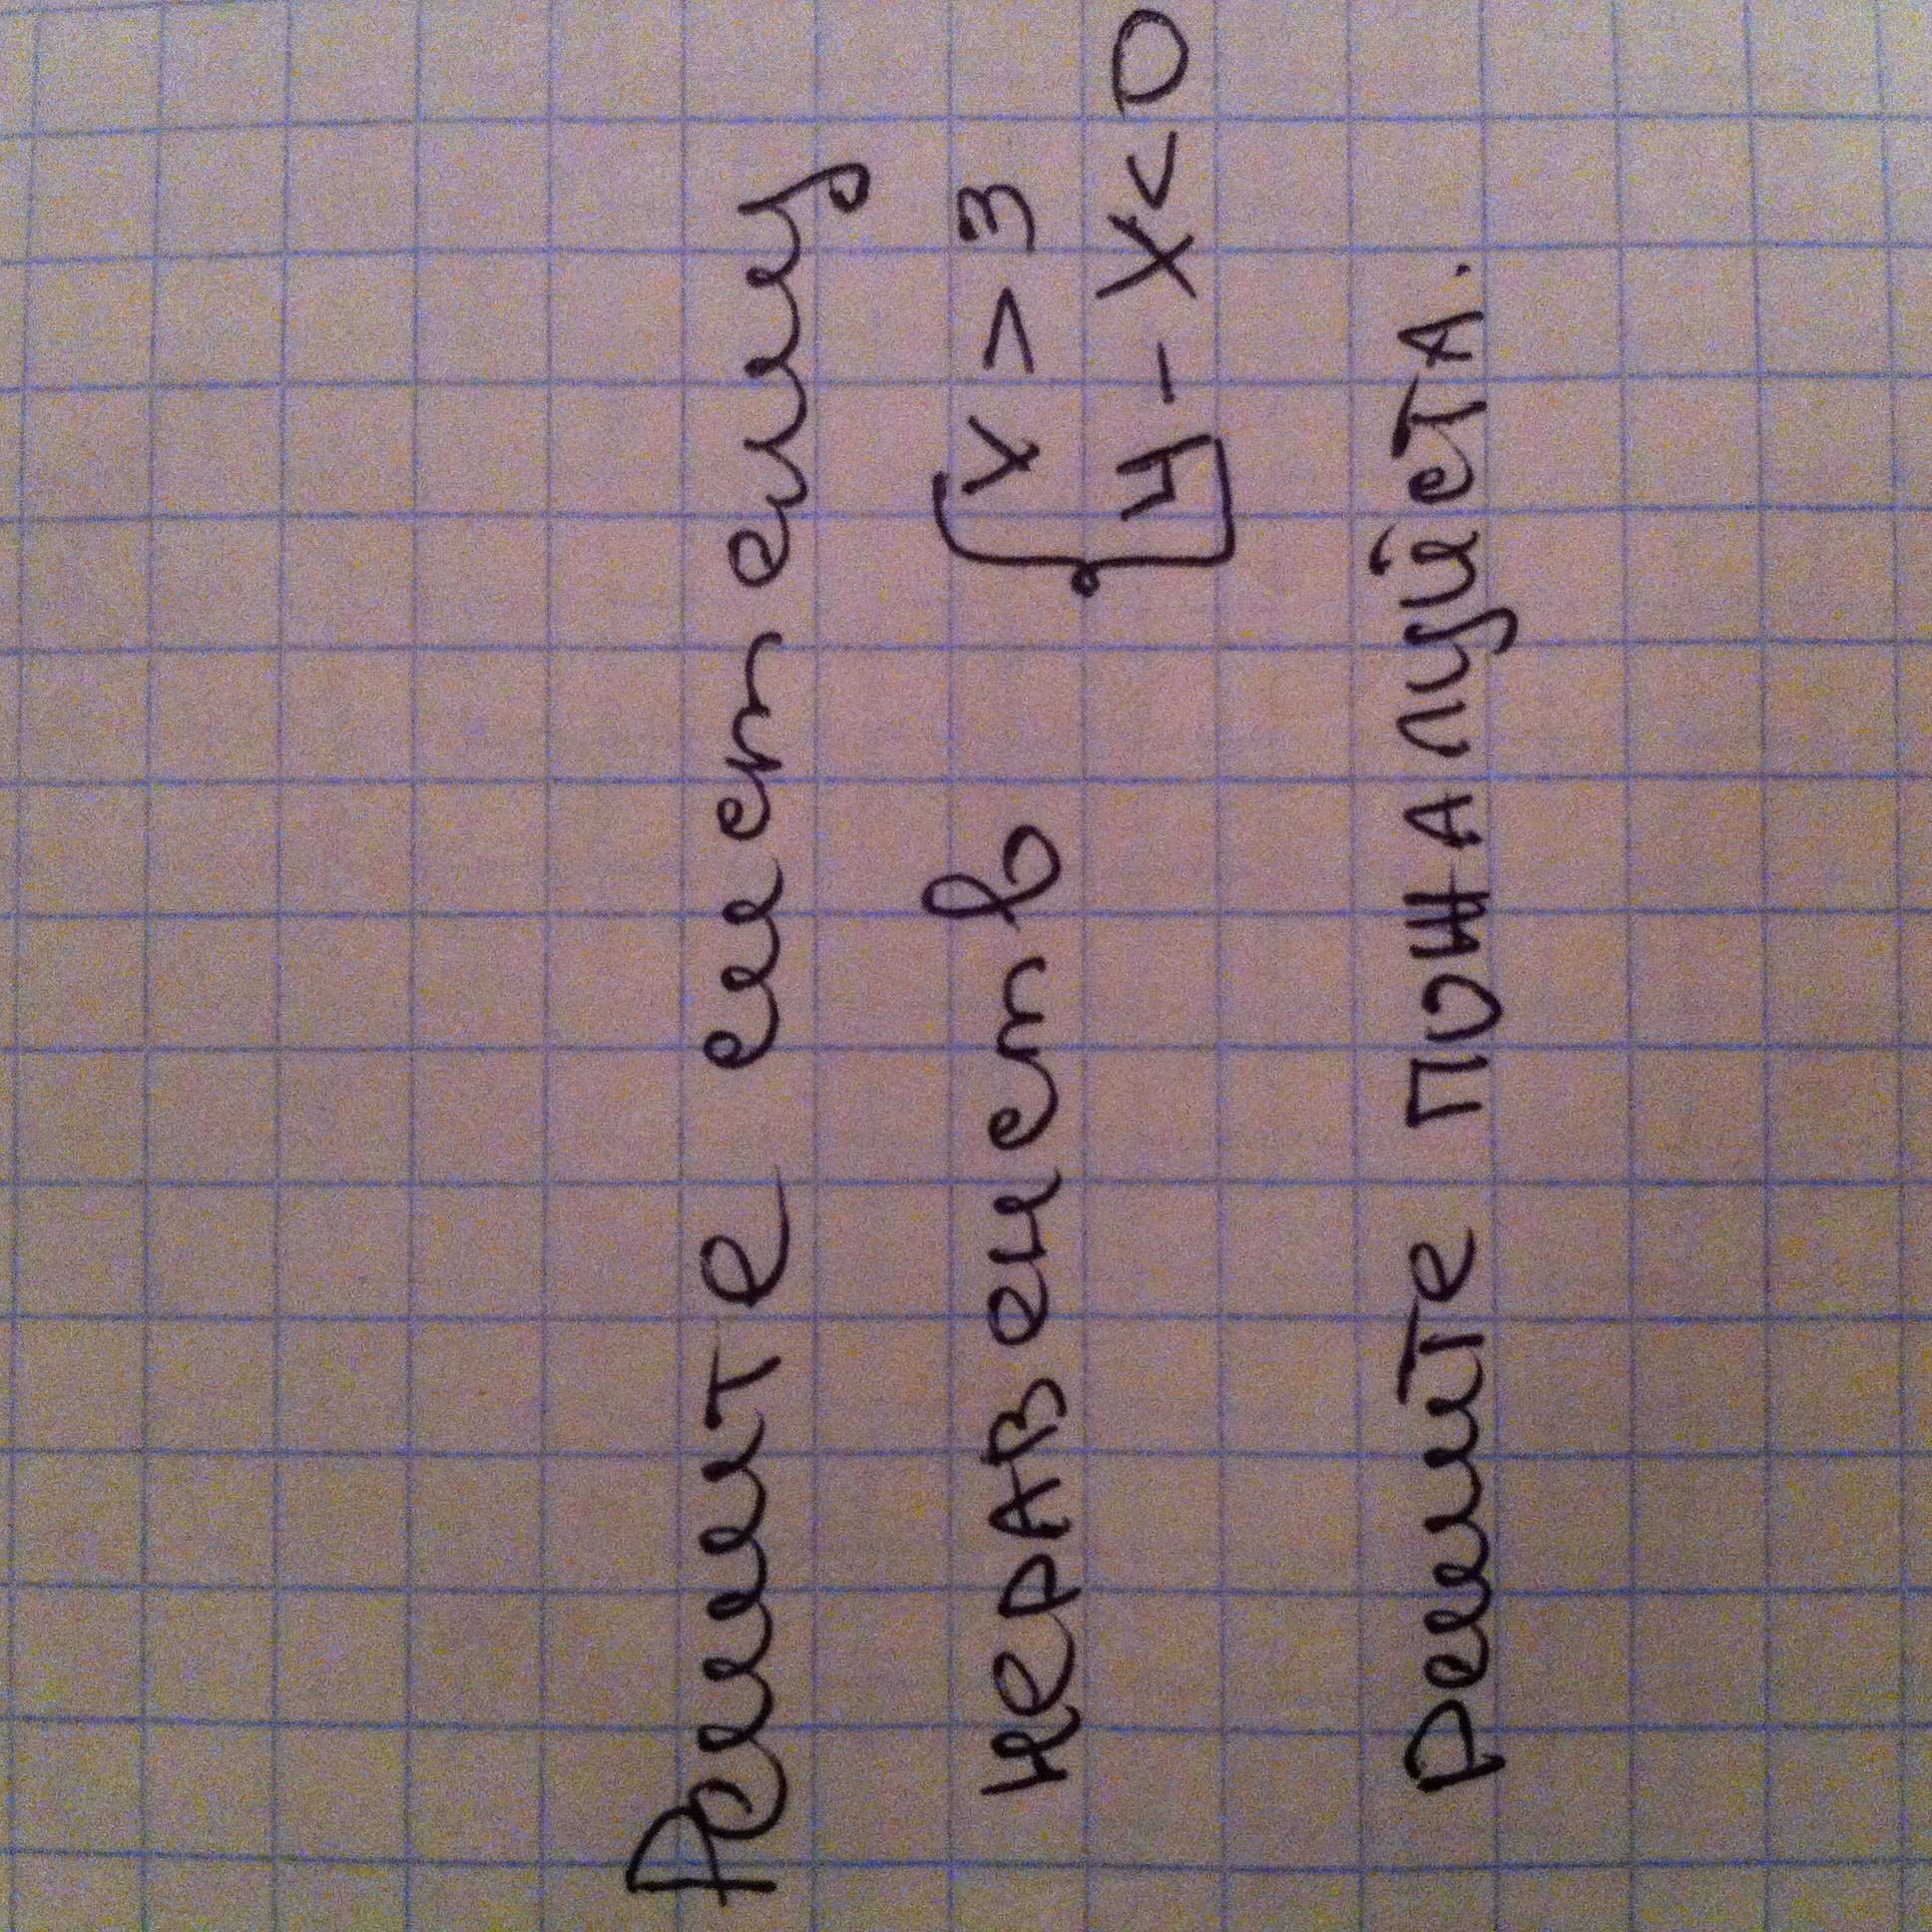 Решите систему
неравенств { х > 3
4 - х < 0
решите пожалуйста.